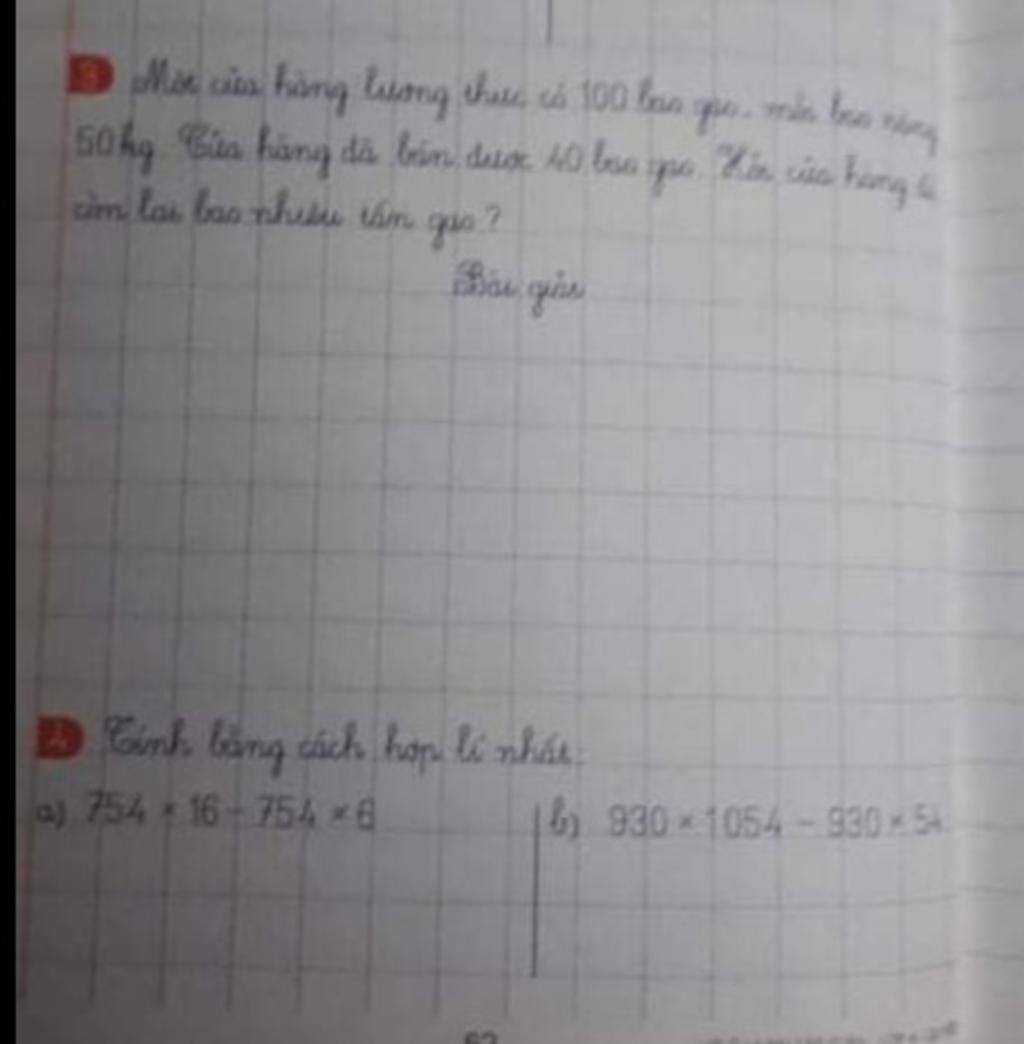 3 Một cửa hàng lương thực có 100 bao gạo, mỗi bao nặng
50kg. Cửa hàng đã bán được 40 bao gạo. Hỏi cửa hàng
còn lại bao nhiêu tấn gạo?
Bài giải
4 Tính bằng cách hợp lí nhất:
a) 754 × 16 - 754 × 6
b) 930 × 1054 - 930 × 54
62